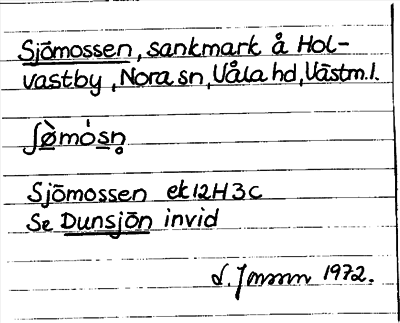 Sjömossen, sankmark å Hol-
vastby, Nora sn, Våla hd, Västm.l.
ʃø̀mósn̥
Sjömossen ek 12H3c
Se Dunsjön invid
1972.